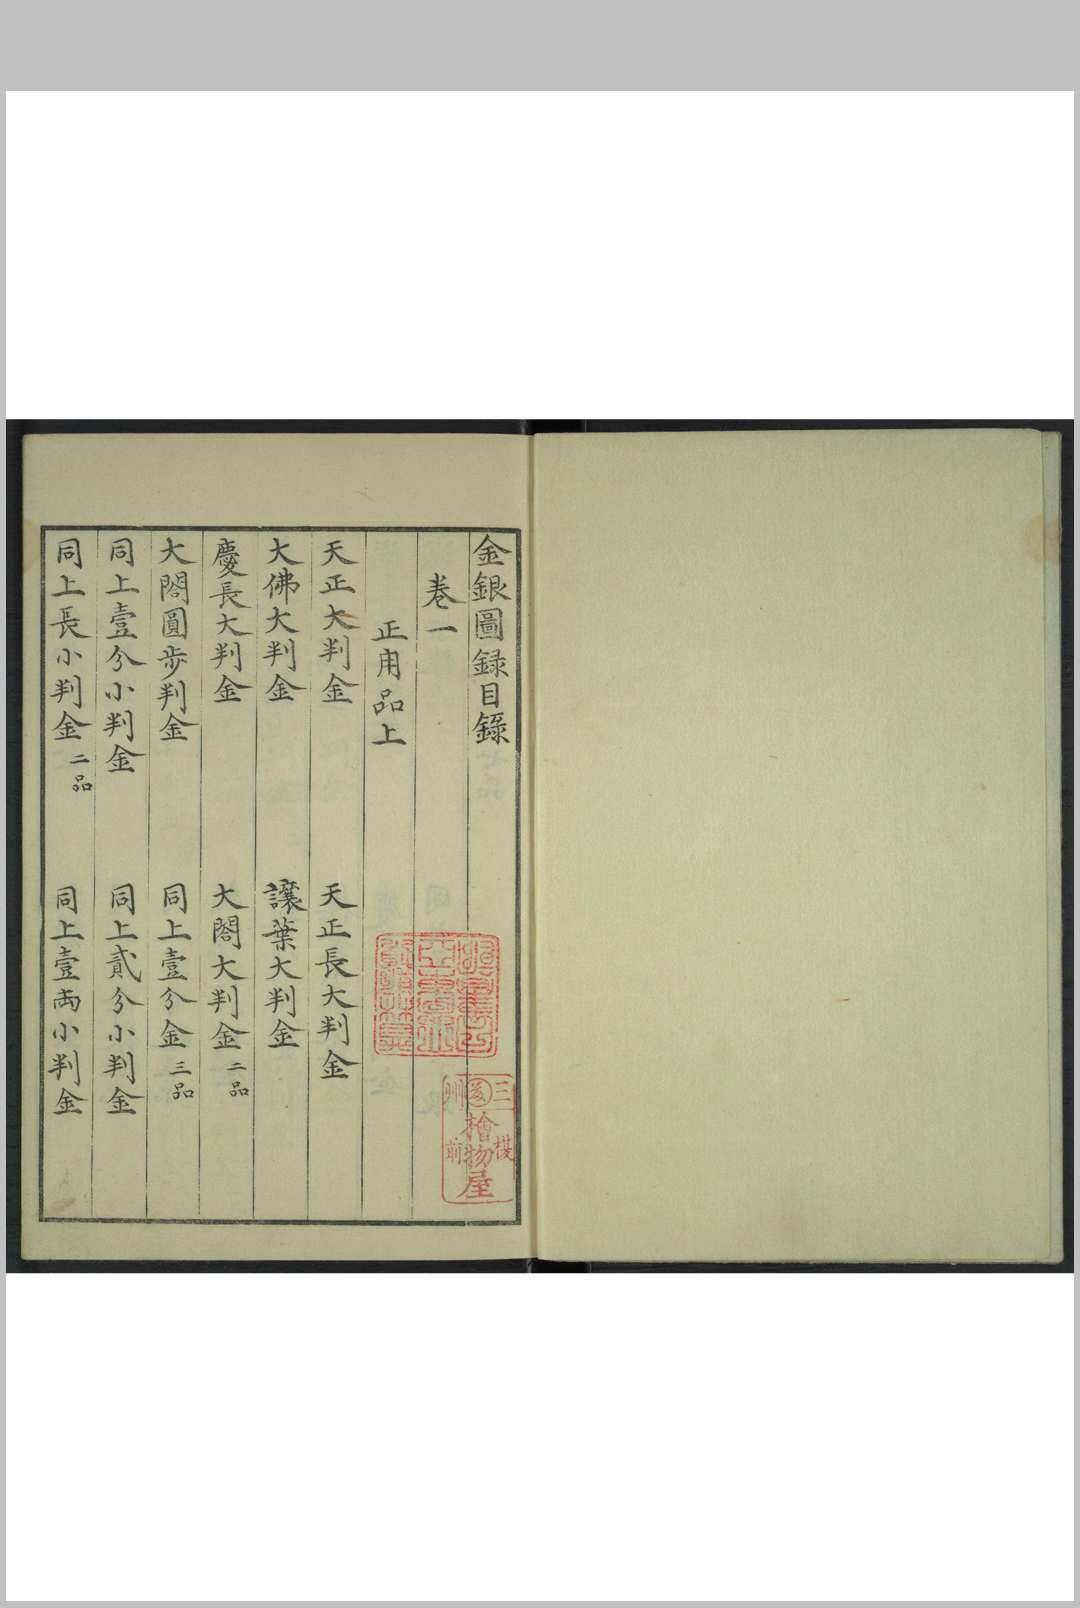 金銀圖録目錄
卷一
正用品上
天正大判金　天正長大判金
大佛大判金　讓葉大判金
慶長大判金　大閤大判金二品
大閤圓步判金　同上壹分金三品
同上壹分小判金　同上貳分小判金
同上長小判金二品　同上壹両小判金
三州
棧前
檜物屋